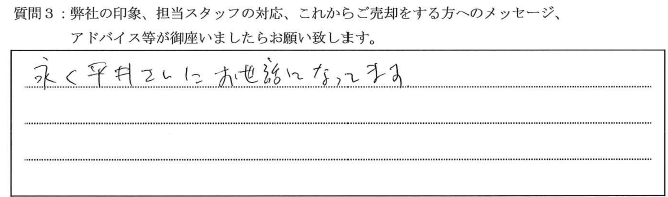 質問3：弊社の印象、担当スタッフの対応、これからご売却をする方へのメッセージ、
アドバイス等が御座いましたらお願い致します。
永く平井さんにお世話になってます